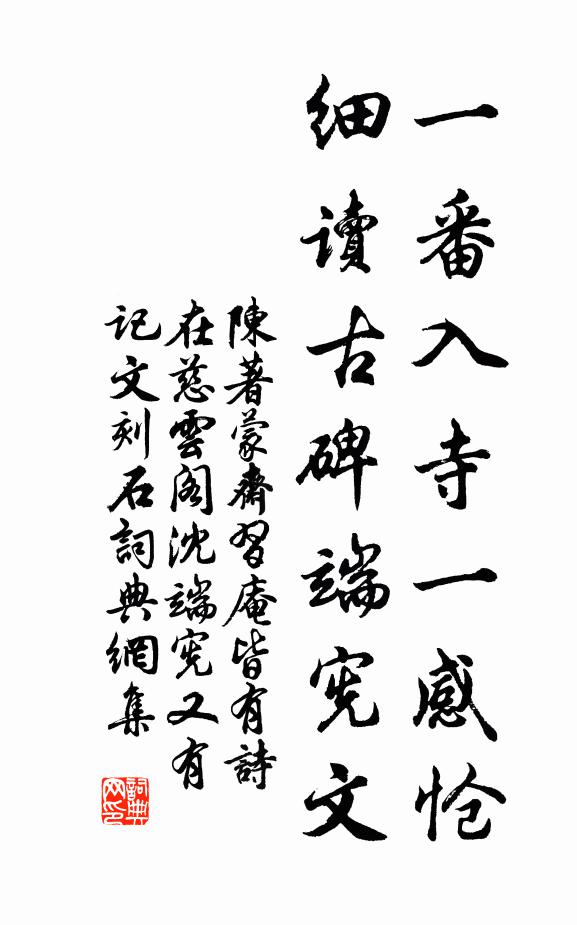 一番入寺一感怆
细讀古碑端宪文
陳著蒙齋習庵皆有詩
在慈雲阁沈端宪又有
记文刻石詞典網集
詞典网印